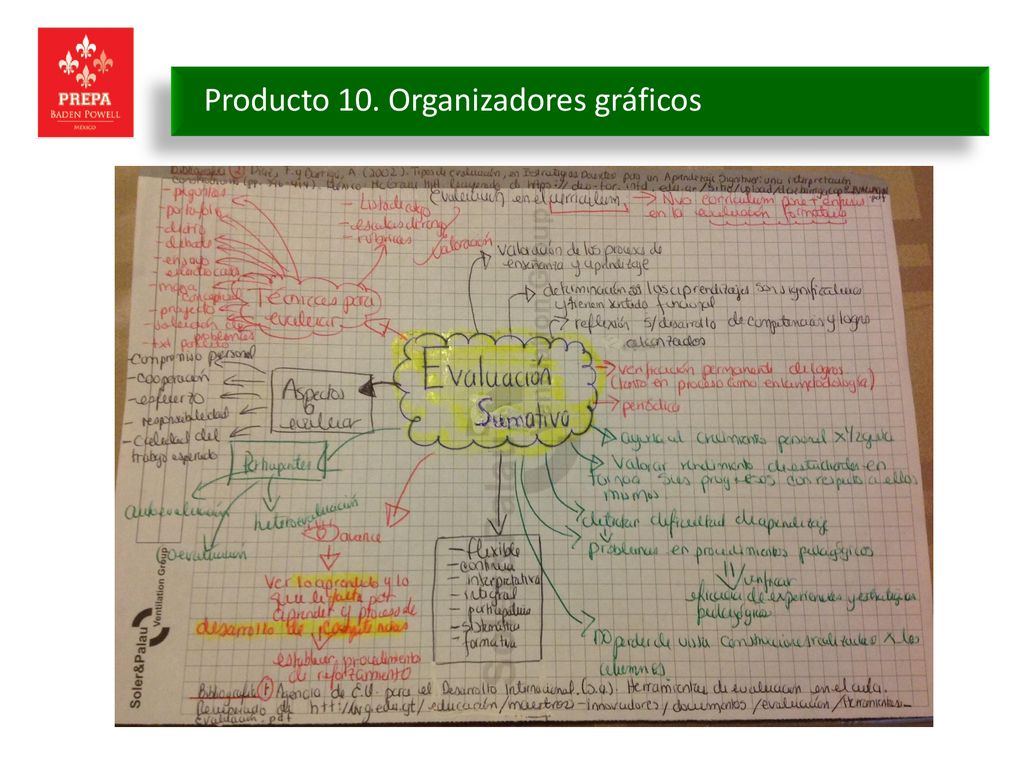 PREPA
BADEN POWELL
MÉXICO
Producto 10. Organizadores gráficos
(2002). Tipos de evaluación, en Estrategias Docentes para un Aprendizaje Significativo: una interpretación
Evaluación en el curriculum
en la evaluación formativa
- preguntas
- portafolio
- diario
- debate
- ensayo
- mapa
conceptual
- proyecto
- solución de
problemas
- Lista de cotejo
- escalas de rango
- rúbricas
Valoración
Técnicas para
evaluar
valoración de los procesos de
enseñanza y aprendizaje
determinación si los aprendizajes son significativos
y tienen sentido funcional
reflexión s/desarrollo de competencias y logro
alcanzados
Evaluación
Sumativa
verificación permanente de logros
(tanto en proceso como en metodología)
periódica
- Compromiso personal
- cooperación
- esfuerzo
- responsabilidad
- Calidad del
trabajo esperado
Aspectos
a
evaluar
Participantes
autoevaluación
heteroevaluación
coevaluación
avance
Ver lo aprendido y lo
que le falta por
aprender y proceso de
desarrollo de competencias
establecer procedimientos
de reforzamiento
- flexible
- continua
- interpretativa
- integral
- participativa
- sistemática
- formativa
ayuda al crecimiento personal
Valorar rendimiento de estudiantes en
forma sus progresos con respecto a ellos
mismos
detectar dificultad de aprendizaje
problemas en procedimientos pedagógicos
verificar
eficacia de experiencias y estrategias
pedagógicas
NO perder de vista construcciones realizadas x los
alumnos
Soler&Palau
Ventilation Group
Bibliografía (1) Agencia de E.U. para el Desarrollo Internacional. (s.a). Herramientas de evaluación en el aula.
Recuperado de
evaluación.pdf